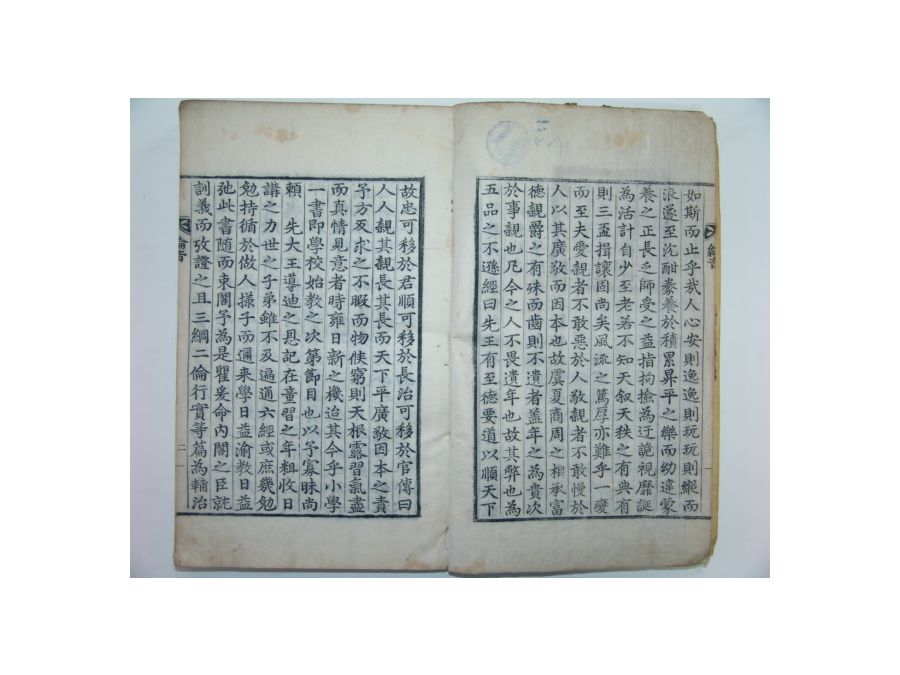 如斯而止乎哉人心安則逸逸則玩玩則縱而
浪遂至沉酣豢養於積累昇平之樂而幼違蒙
養之正長之師受之益指拘檢為迂詭視靡誕
為活計自少至老若不知天叙天秩之有典有
則三盃揖讓固尚矣風流之篤厚亦難乎一變
而至夫愛親者不敢惡於人敬親者不敢慢於
人以其廣敬而因本也故虞夏商周之相承富
德親爵之有殊而齒則不遺者盖年之為貴次
於事親也乃今之人不畏遺年也故其弊也為
五品之不遜經曰先王有至德要道以順天下
綸音
一
故忠可移於君順可移於長治可移於官傳曰
人人親其親長其長而天下平廣敬因本之責
予方反求之不暇而物候窮則天根露習氣盡
而真情見意者時雍日新之機迨其今乎小學
一書即學校始教之次第節目也以予寡昧尚
賴先大王導迪之恩記在童習之年粗收日
講之力世之子弟雖不及遍通六經或庶幾勉
勉持循於做人樣子而邇来學日益渝教日益
弛此書隨而束閣予為是瞿爰命內閣之臣就
訓義而攷證之且三綱二倫行實等篇為輔治
綸音
二